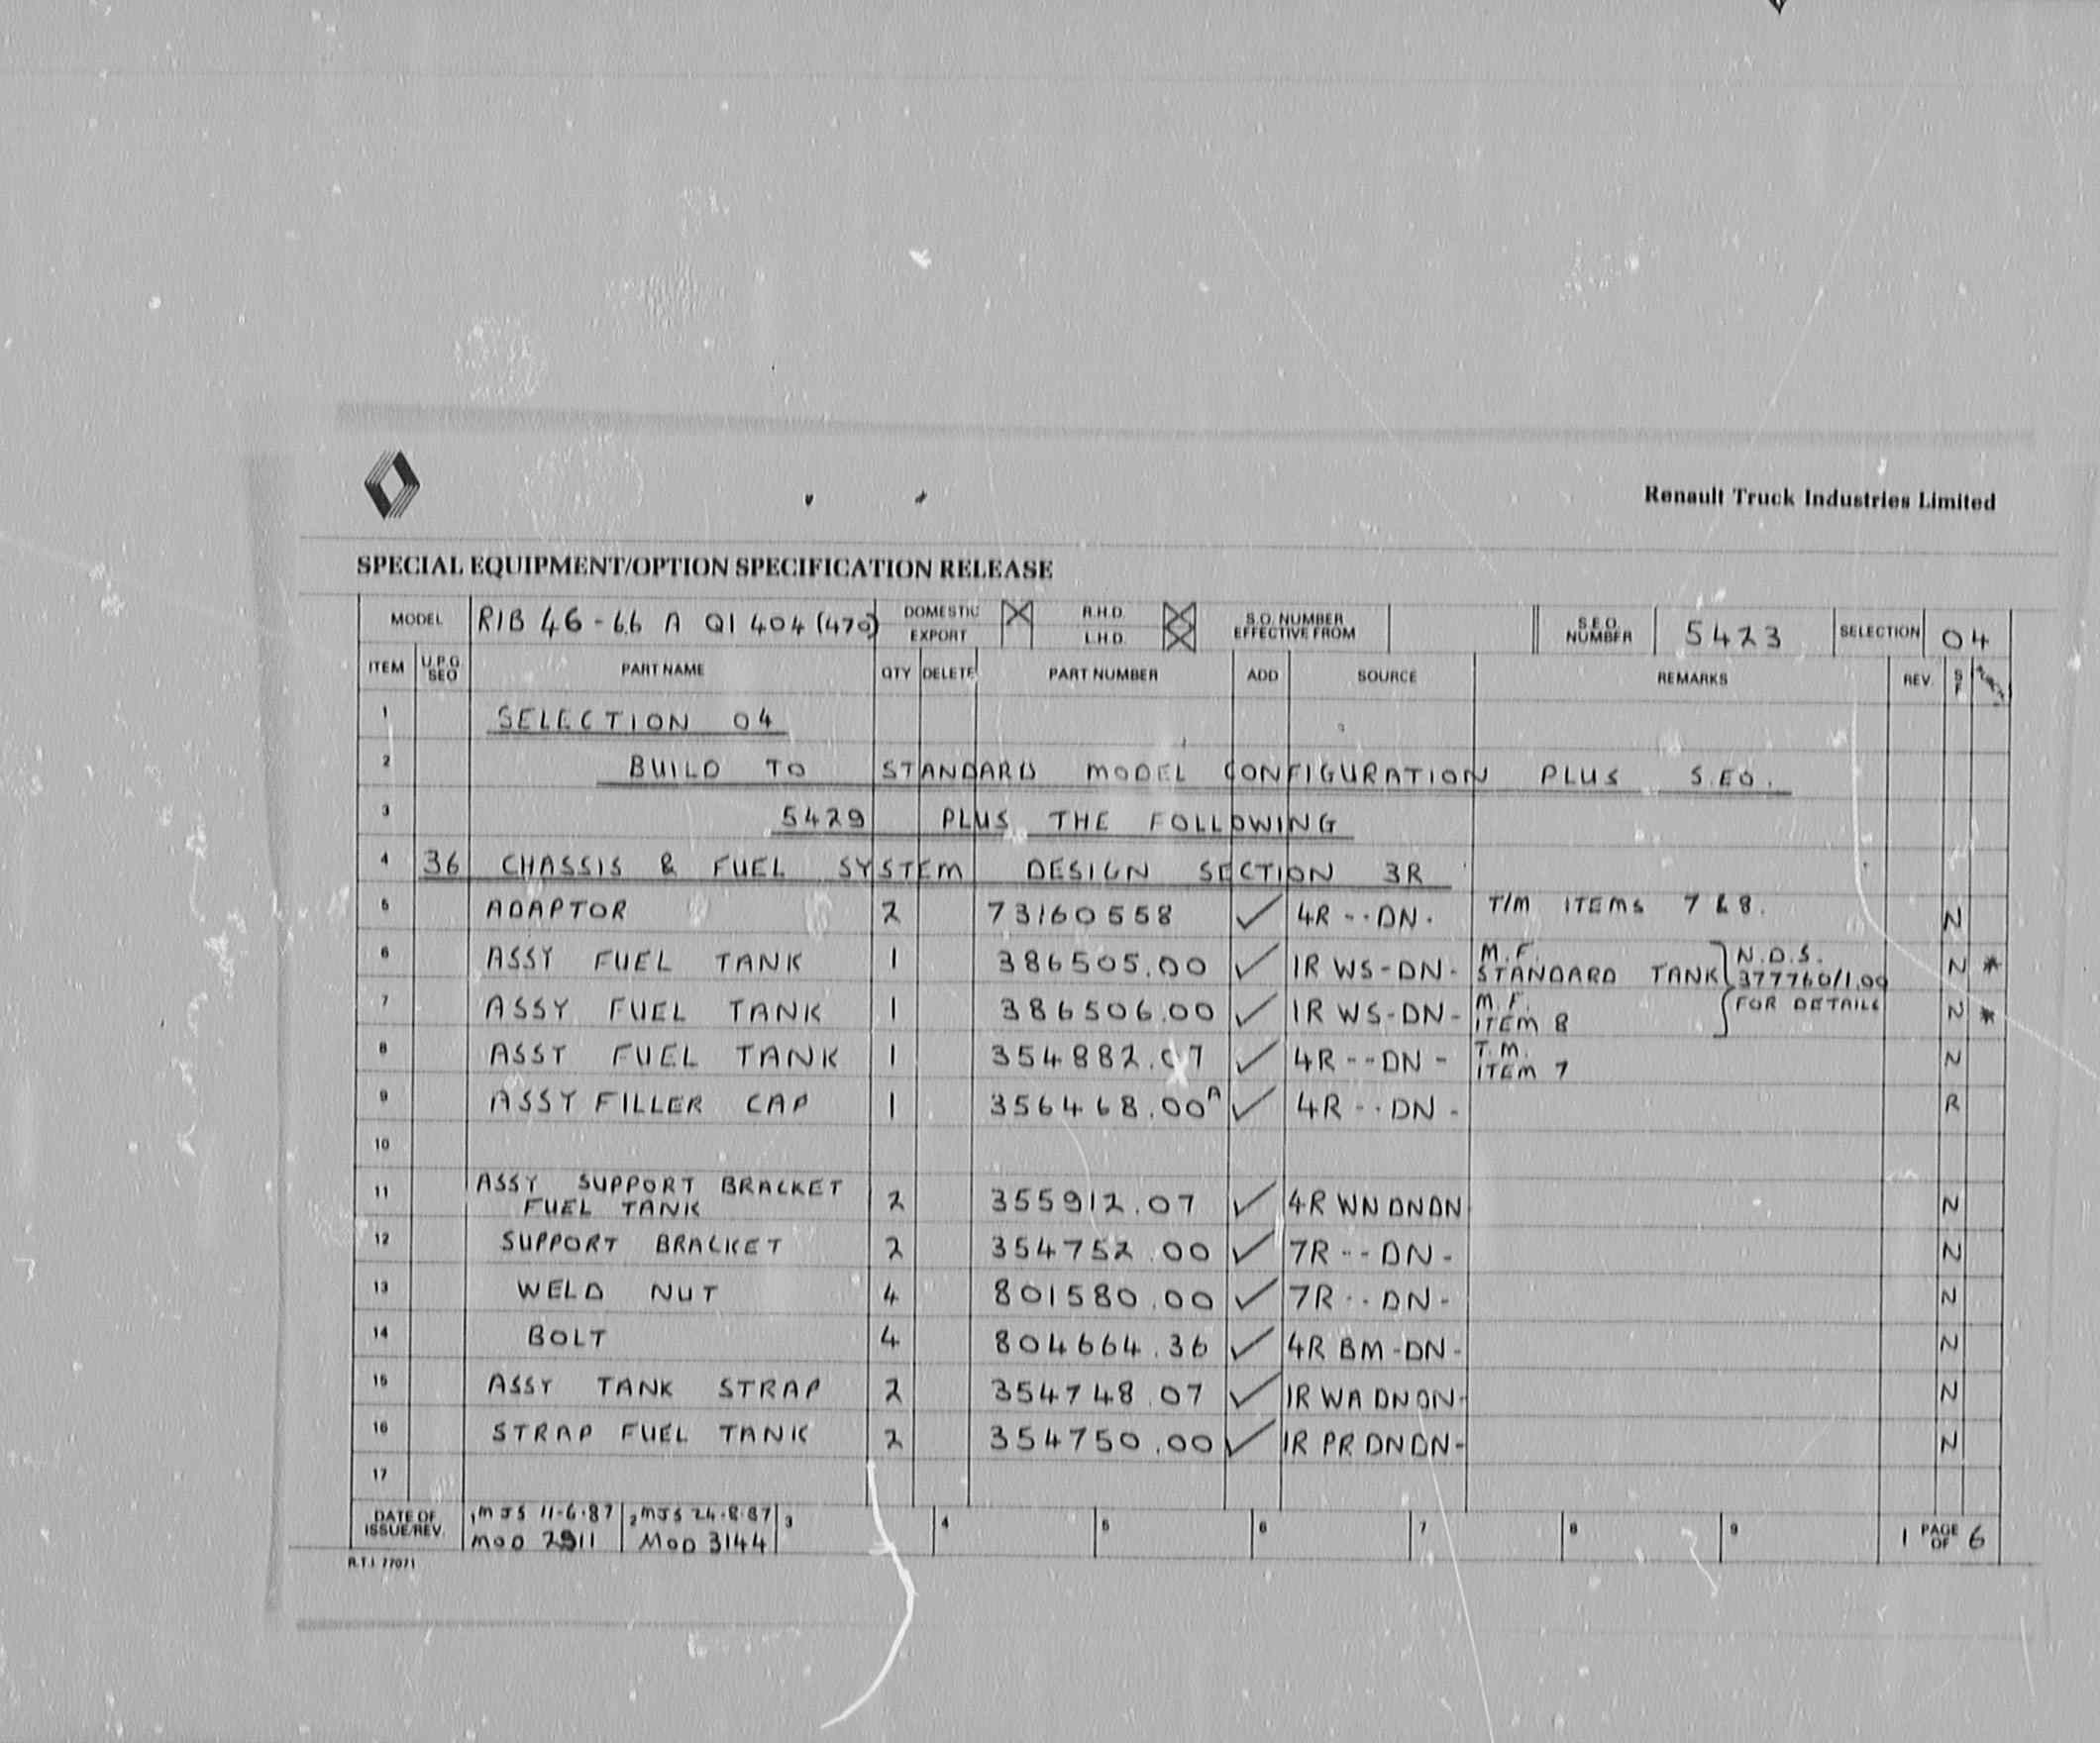 Renault Truck Industries Limited
SPECIAL EQUIPMENT/OPTION SPECIFICATION RELEASE
MODEL R1B 46-66 A Q1 404 (470) DOMESTIC EXPORT R.H.D. L.H.D. S.O. NUMBER EFFECTIVE FROM S.E.O. NUMBER 5423 SELECTION 04
ITEM U.P.G SEO PART NAME QTY DELETE PART NUMBER ADD SOURCE REMARKS REV. S F
1 SELECTION 04
2 BUILD TO STANDARD MODEL CONFIGURATION PLUS S.EO.
3 5429 PLUS THE FOLLOWING
4 36 CHASSIS & FUEL SYSTEM DESIGN SECTION 3R
5 ADAPTOR 2 73160558 ✓ 4R--DN- T/M ITEMS 7 & 8. N
6 ASSY FUEL TANK 1 386505.00 ✓ 1R WS-DN- M.F. STANDARD TANK N.D.S. 377760/1.00 N *
7 ASSY FUEL TANK 1 386506.00 ✓ 1R WS-DN- M.F. ITEM 8 FOR DETAILS N *
8 ASSY FUEL TANK 1 354882.07 ✓ 4R--DN- T.M. ITEM 7 N
9 ASSY FILLER CAP 1 356468.00A ✓ 4R--DN- R
10
11 ASSY SUPPORT BRACKET FUEL TANK 2 355912.07 ✓ 4R WN DNDN N
12 SUPPORT BRACKET 2 354752.00 ✓ 7R--DN- N
13 WELD NUT 4 801580.00 ✓ 7R--DN- N
14 BOLT 4 804664.36 ✓ 4R BM-DN- N
15 ASSY TANK STRAP 2 354748.07 ✓ 1R WA DNDN- N
16 STRAP FUEL TANK 2 354750.00 ✓ 1R PR DNDN- N
17
DATE OF ISSUE/REV. 1 MJS 11-6-87 MOD 2911 2 MJS 24-8-87 MOD 3144 3 4 5 6 7 8 9 1 PAGE OF 6
R.T.I 77071